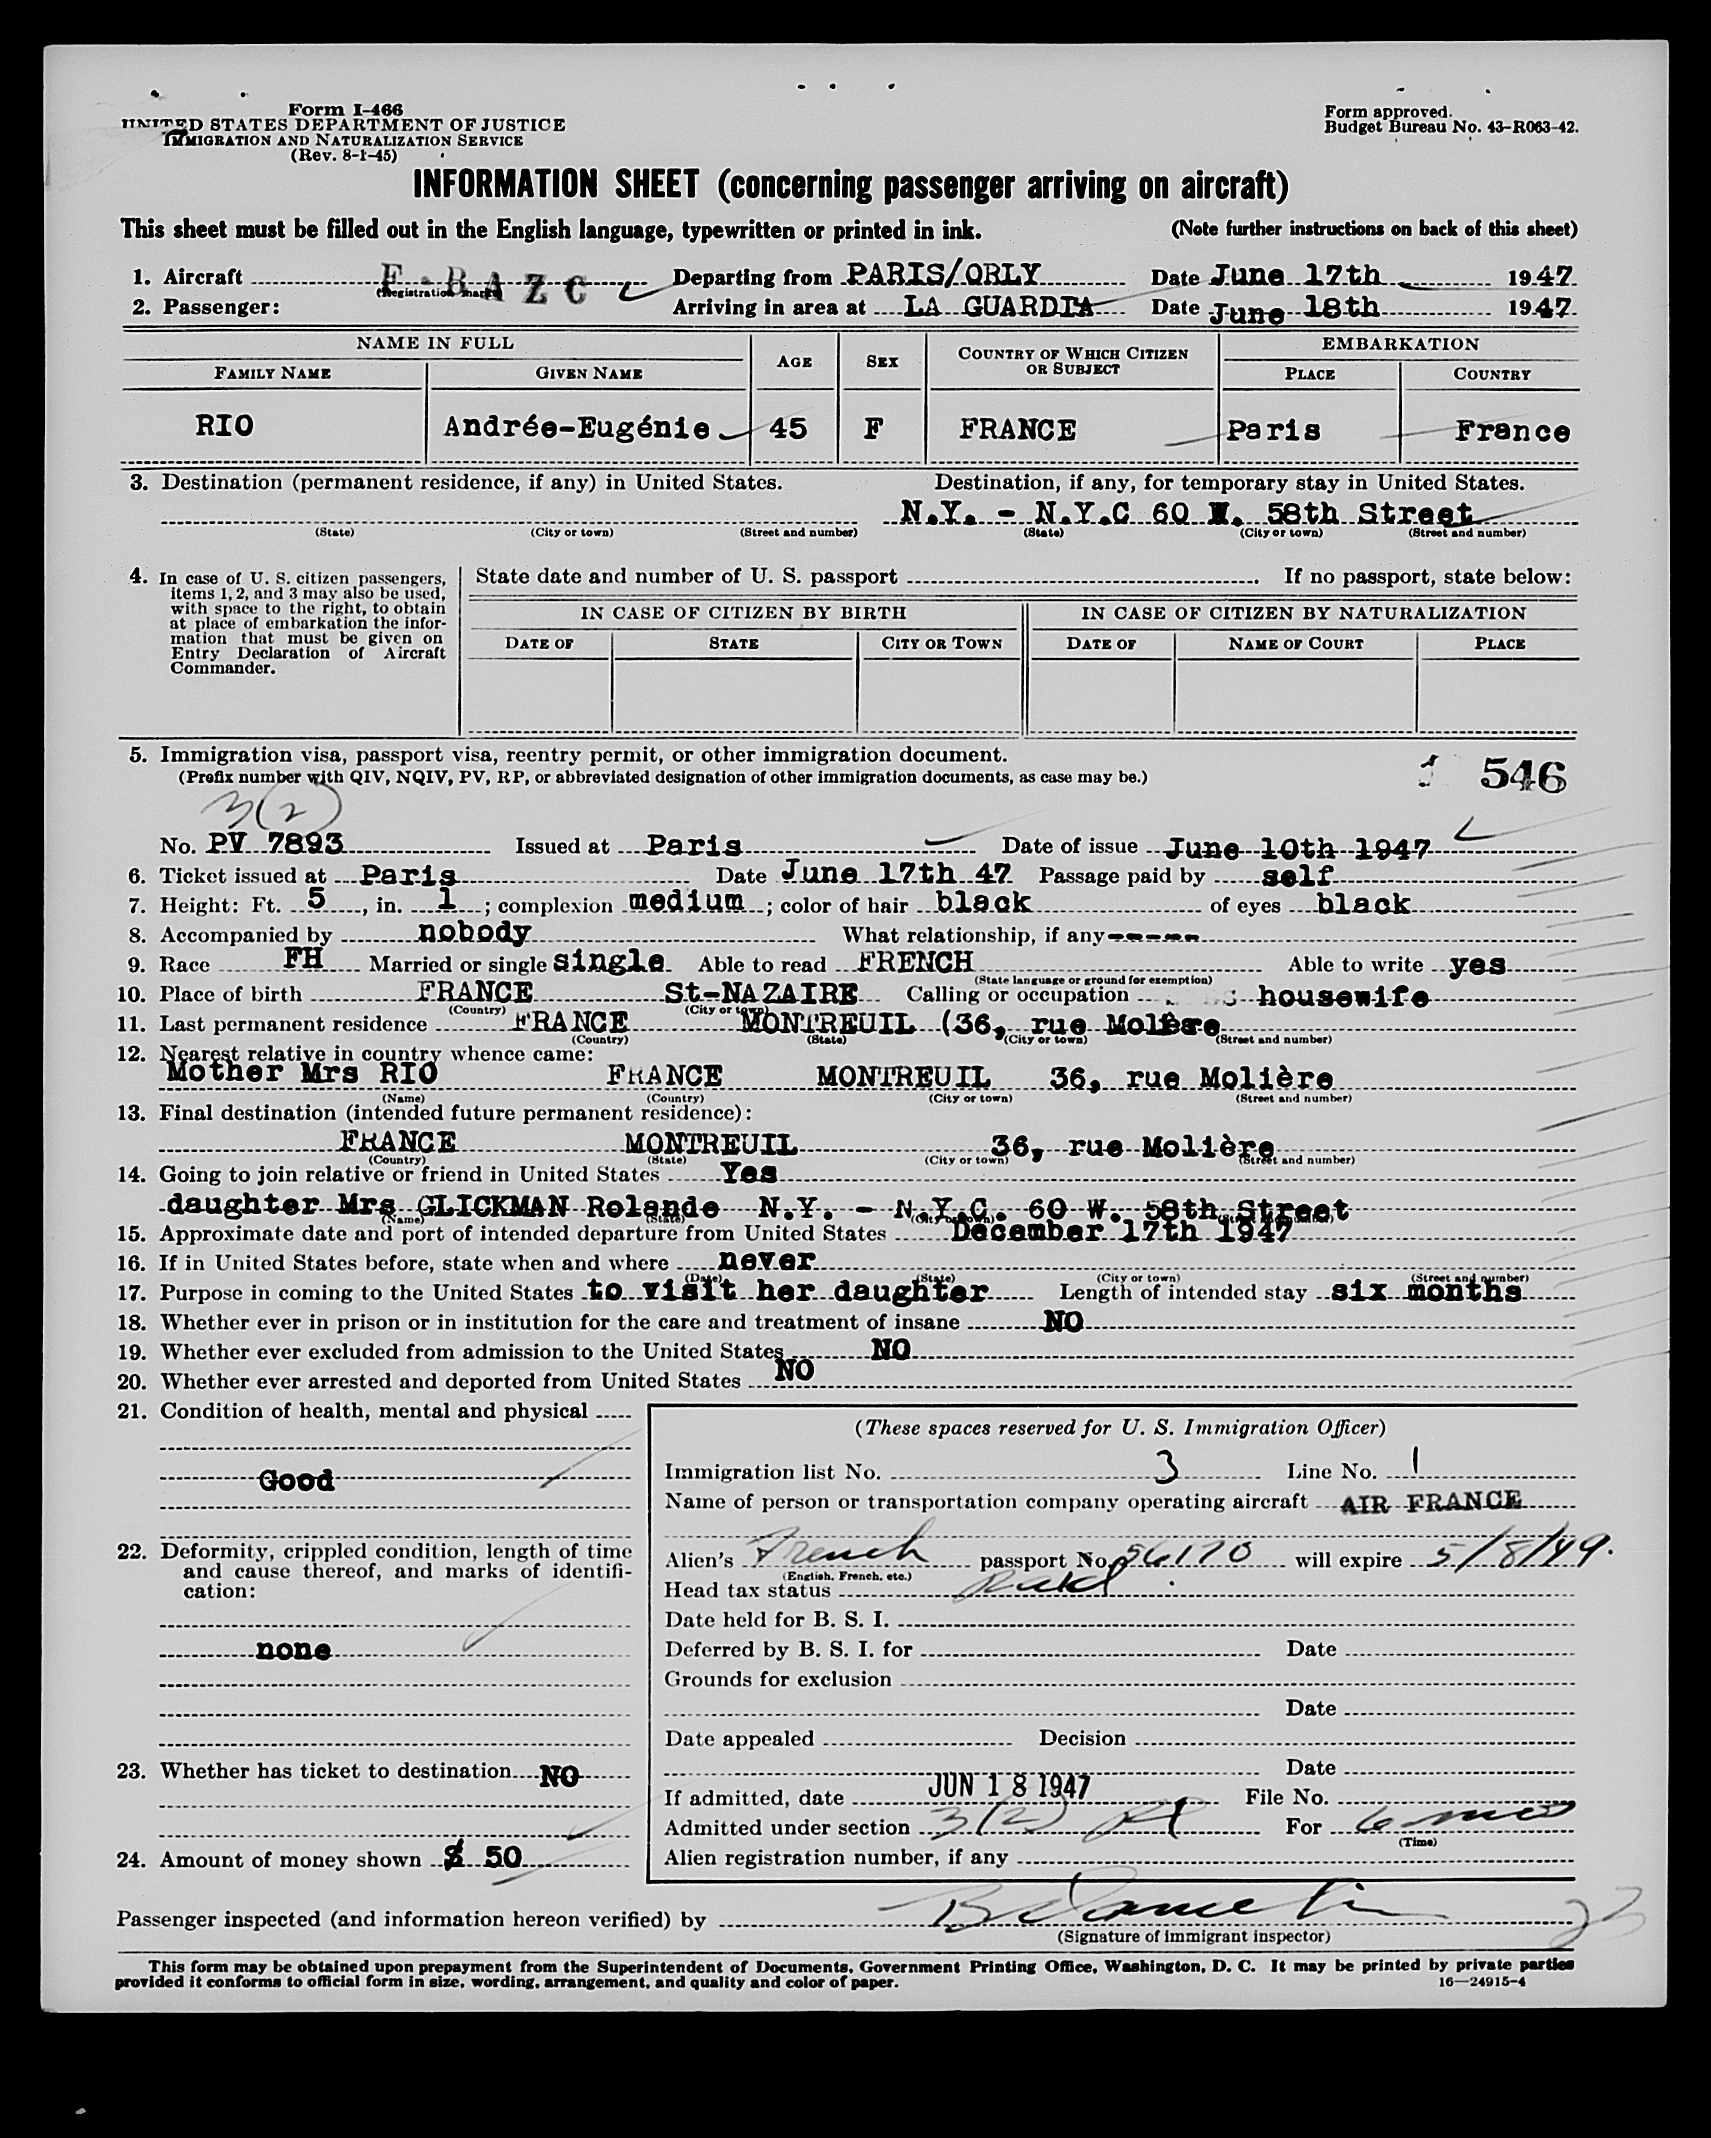 Form I-466
UNITED STATES DEPARTMENT OF JUSTICE
IMMIGRATION AND NATURALIZATION SERVICE
(Rev. 8-1-45)
Form approved.
Budget Bureau No. 43-R063-42.
INFORMATION SHEET (concerning passenger arriving on aircraft)
This sheet must be filled out in the English language, typewritten or printed in ink. (Note further instructions on back of this sheet)
1. Aircraft F-BAZC Departing from PARIS/ORLY Date June 17th 1947.
(Registration marks)
2. Passenger: Arriving in area at LA GUARDIA Date June 18th 1947.
NAME IN FULL AGE SEX COUNTRY OF WHICH CITIZEN OR SUBJECT EMBARKATION
FAMILY NAME GIVEN NAME PLACE COUNTRY
RIO Andrée-Eugénie 45 F FRANCE Paris France
3. Destination (permanent residence, if any) in United States. Destination, if any, for temporary stay in United States.
N.Y. - N.Y.C 60 W. 58th Street
(State) (City or town) (Street and number) (State) (City or town) (Street and number)
4. In case of U. S. citizen passengers, items 1, 2, and 3 may also be used, with space to the right, to obtain at place of embarkation the information that must be given on Entry Declaration of Aircraft Commander.
State date and number of U. S. passport . If no passport, state below:
IN CASE OF CITIZEN BY BIRTH IN CASE OF CITIZEN BY NATURALIZATION
DATE OF STATE CITY OR TOWN DATE OF NAME OF COURT PLACE
5. Immigration visa, passport visa, reentry permit, or other immigration document.
(Prefix number with QIV, NQIV, PV, RP, or abbreviated designation of other immigration documents, as case may be.)
546
3(2)
No. PV 7893 Issued at Paris Date of issue June 10th 1947
6. Ticket issued at Paris Date June 17th 47 Passage paid by self
7. Height: Ft. 5, in. 1; complexion medium; color of hair black of eyes black
8. Accompanied by nobody What relationship, if any -----
9. Race FH Married or single single Able to read FRENCH Able to write yes
(State language or ground for exemption)
10. Place of birth FRANCE St-NAZAIRE Calling or occupation housewife
(Country) (City or town)
11. Last permanent residence FRANCE MONTREUIL (36, rue Molère
(Country) (State) (City or town) (Street and number)
12. Nearest relative in country whence came:
Mother Mrs RIO FRANCE MONTREUIL 36, rue Molière
(Name) (Country) (City or town) (Street and number)
13. Final destination (intended future permanent residence):
FRANCE MONTREUIL 36, rue Molière
(Country) (State) (City or town) (Street and number)
14. Going to join relative or friend in United States Yes
daughter Mrs GLICKMAN Rolande N.Y. - N.Y.C. 60 W. 58th Street
(Name) (State) (City or town) (Street and number)
15. Approximate date and port of intended departure from United States December 17th 1947
16. If in United States before, state when and where never
(Date) (State) (City or town) (Street and number)
17. Purpose in coming to the United States to visit her daughter Length of intended stay six months
18. Whether ever in prison or in institution for the care and treatment of insane NO
19. Whether ever excluded from admission to the United States NO
20. Whether ever arrested and deported from United States NO
21. Condition of health, mental and physical
Good
22. Deformity, crippled condition, length of time and cause thereof, and marks of identification:
none
23. Whether has ticket to destination NO
24. Amount of money shown $ 50
(These spaces reserved for U. S. Immigration Officer)
Immigration list No. 3 Line No. 1
Name of person or transportation company operating aircraft AIR FRANCE
Alien's French passport No. 56170 will expire 5/8/49.
(English, French, etc.)
Head tax status
Date held for B. S. I.
Deferred by B. S. I. for Date
Grounds for exclusion
Date
Date appealed Decision
Date
If admitted, date JUN 18 1947 File No.
Admitted under section 3(2) For 6 mos
(Time)
Alien registration number, if any
Passenger inspected (and information hereon verified) by
(Signature of immigrant inspector)
This form may be obtained upon prepayment from the Superintendent of Documents, Government Printing Office, Washington, D. C. It may be printed by private parties
provided it conforms to official form in size, wording, arrangement, and quality and color of paper. 16—24915-4